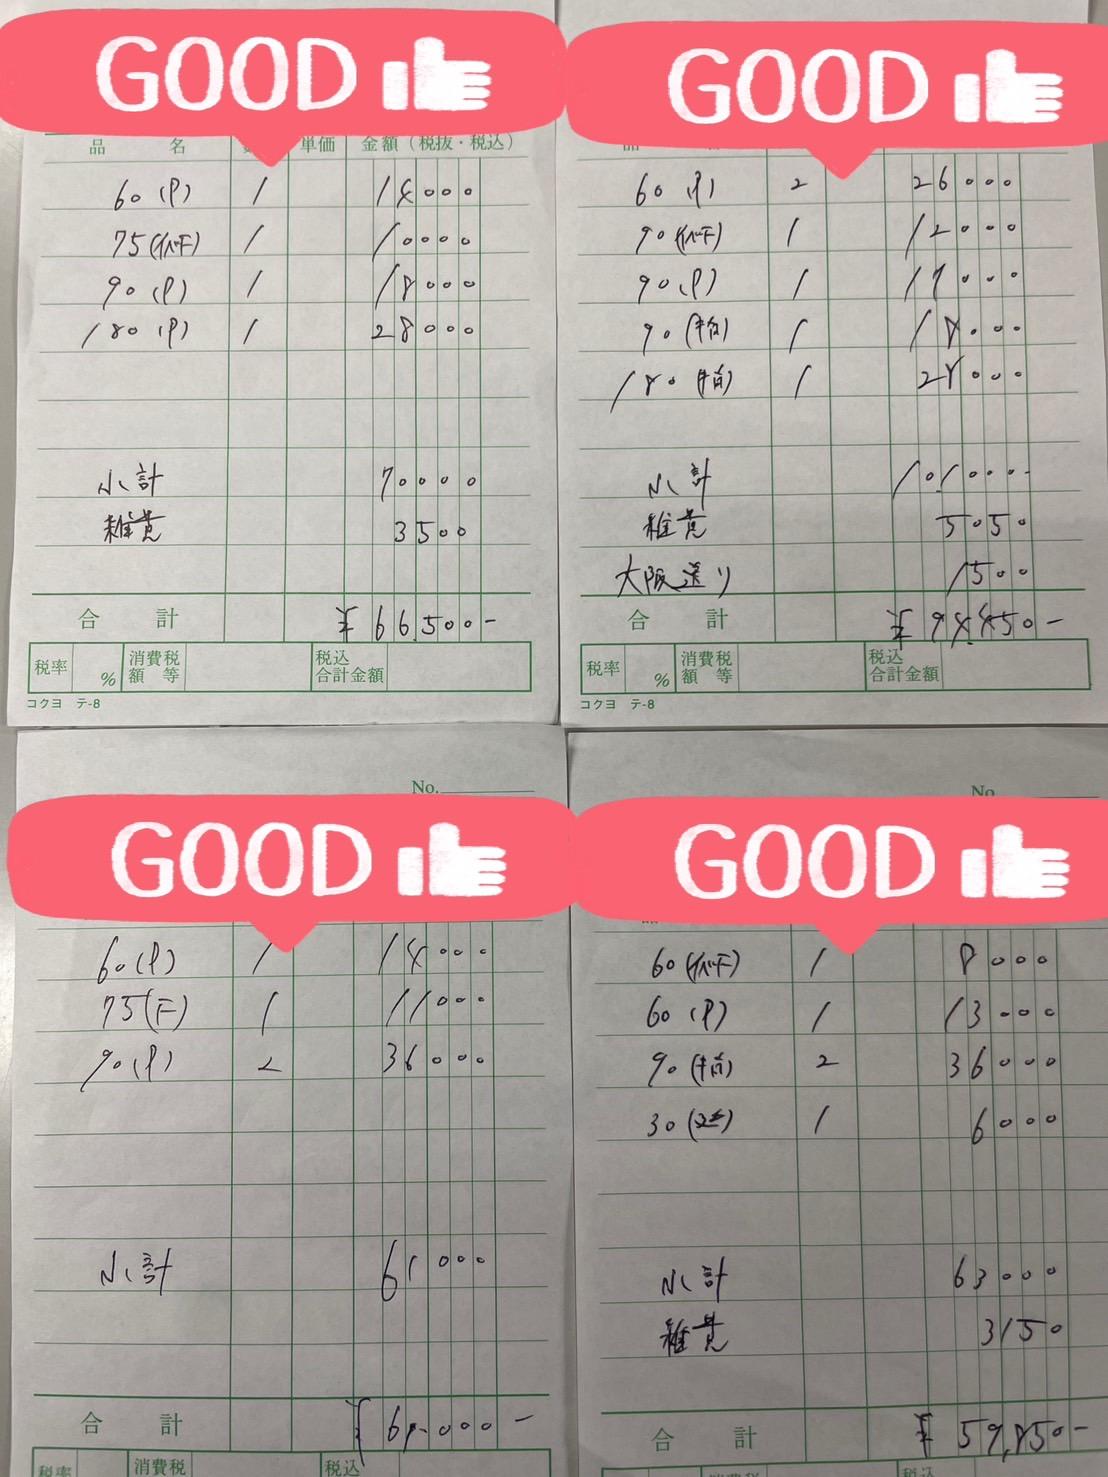 GOOD
品 名 単価 金額（税抜・税込）
60 (P) 1 14000
75 (イベF) 1 10000
90 (P) 1 18000
180 (P) 1 28000
小計 70000
雑費 3500
合 計 ¥66,500-
税率 % 消費税額等 税込合計金額
コクヨ テ-8
GOOD
60 (P) 2 26000
90 (イベF) 1 12000
90 (P) 1 17000
90 (指) 1 18000
180 (指) 1 28000
小計 101000-
雑費 5050
大阪送り 1500
合 計 ¥94,450-
税率 % 消費税額等 税込合計金額
コクヨ テ-8
No.
GOOD
60 (P) 1 14000
75 (F) 1 11000
90 (P) 2 36000
小計 61000
合 計 ¥61,000-
税率 消費税 税込
No.
GOOD
60 (イベF) 1 8000
60 (P) 1 13000
90 (指) 2 36000
30 1 6000
小計 63000
雑費 3150
合 計 ¥59,850-